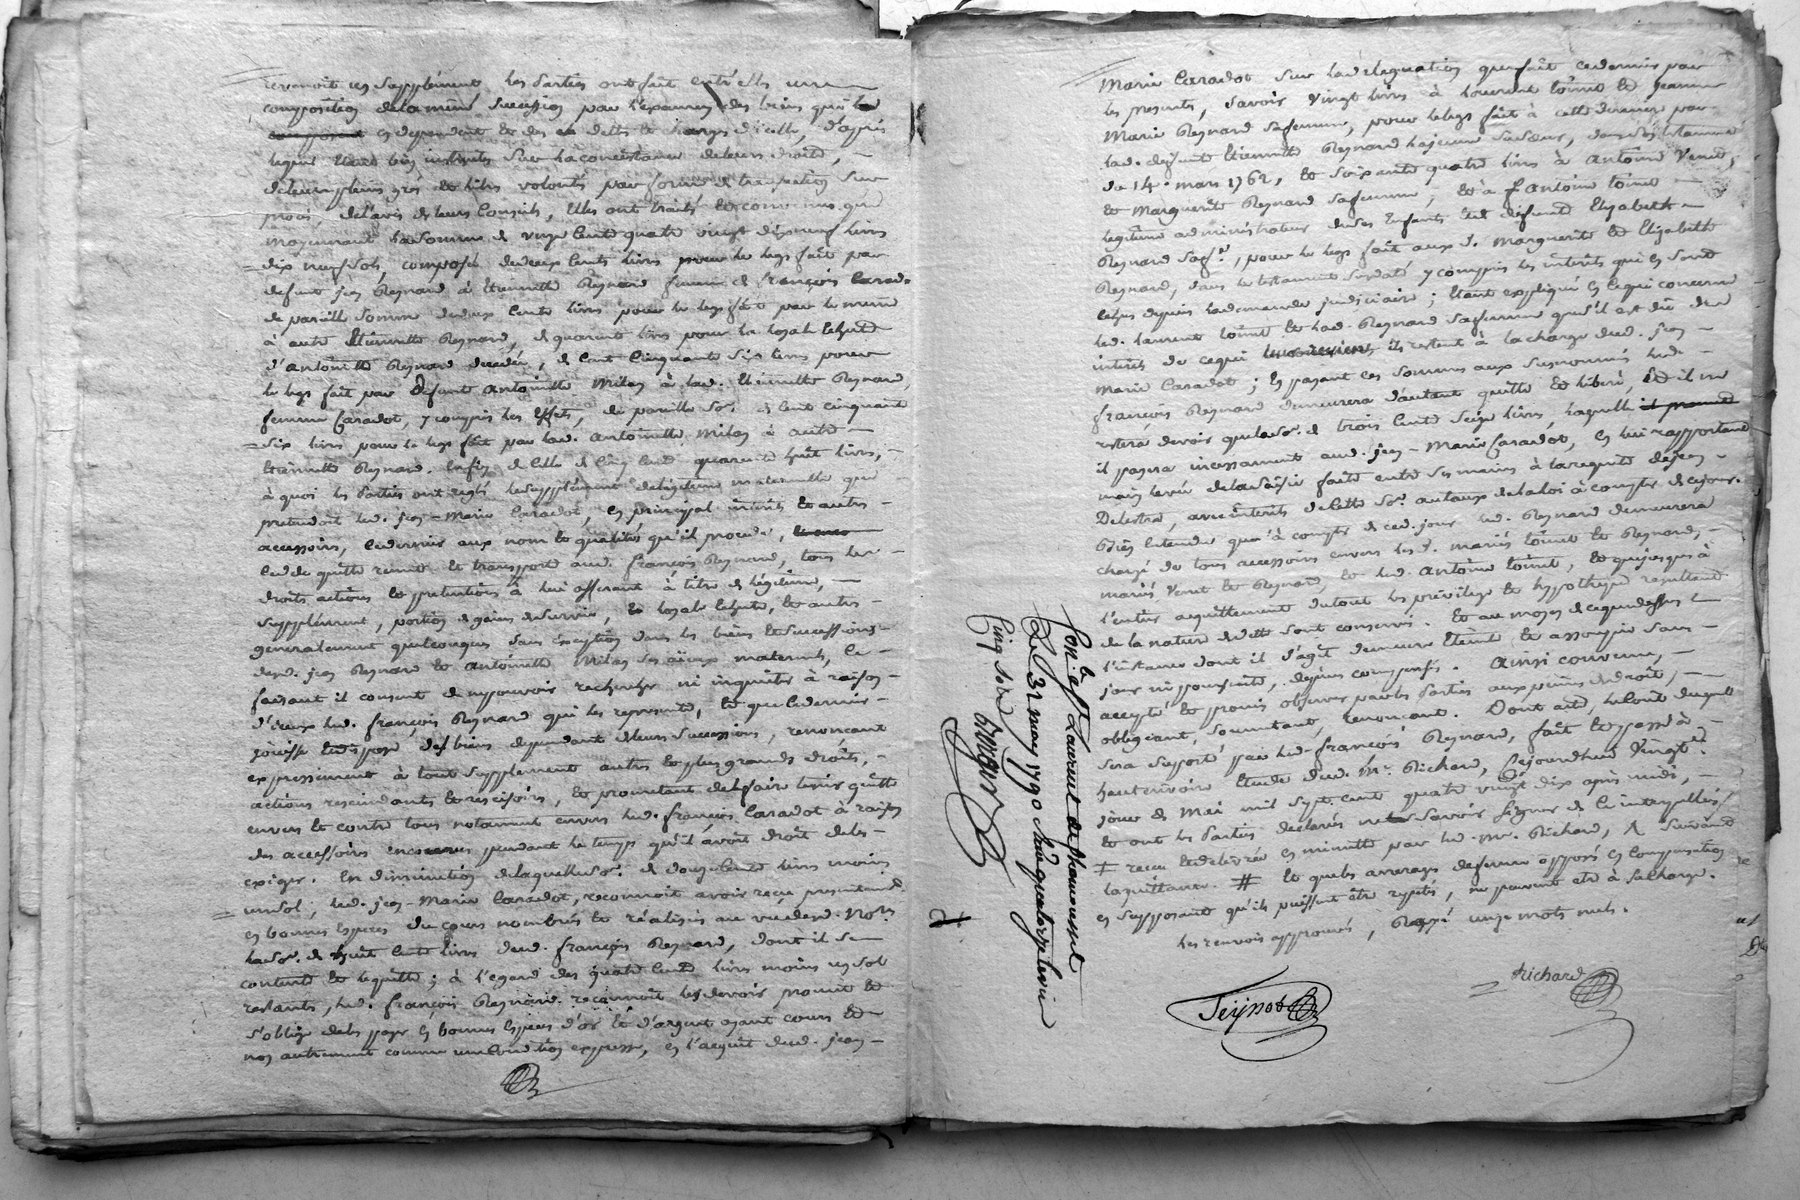 revenoit ces supplément les Parties ont fait entr'elles une
composition de la même succession par l'examen des biens qui la
composent en dependent et des dettes et charges d'icelle, d'après
lequel étant bien instruits sur la consistance de leurs droits,
de leurs pleins grés et libres volontés par forme de transaction sur
procès, de l'avis de leurs Conseils, Elles ont traité et convenu que
moyennant la somme de onze cents quatre vingt dix neuf livres
dix neuf sols, composée de deux cents livres pour le legs fait par
defunt jean Reynard à Etiennette Reynard femme de François Caradot
de pareille somme de deux cents livres pour le legs fait par le meme
à autre Etiennette Reynard, de quarante livres pour la
d'antoinette Reynard decedée, de cent cinquante six livres pour
le legs fait par defunte antoinette Milan à lad. Etiennette Reynard
femme Caradot, y compris les effets, de pareille so.e de cent cinquante
six livres pour le legs fait par lad. antoinette Milan à autre
Etiennette Reynard. Enfin de celle de cinq cent quarante huit livres,
à quoi les Parties ont reglé le supplément de légitime maternelle que
pretendoit led. jean-Marie Caradot, en principal intérêts et autres
accessoires, ce dernier aux nom et qualités qu'il procede,
cede quitte remet et transporte aud. françois Reynard, tous les
droits actions et pretentions à lui afferant à titre de légitime,
supplément, portion de gains de survie, et autres
generalement quelconques sans exception dans les biens et successions
desd. jean Reynard et antoinette Milan ses aïeux maternels, ce
faisant il consent de ne pouvoir rechercher ni inquiéter à raison
d'iceux led. françois Reynard qui les represente, et que ce dernier
jouisse et dispose des biens dependant de leurs successions, renonçant
expressément à tout supplément autres et plus grands droits,
actions rescindants et rescisoirs, et promettant de le faire tenir quitte
envers et contre tous notamment envers led. françois Caradot à raison
des accessoires encourus pendant le temps qu'il avoit droit de les
exiger. En diminution de laquelle so.e de douze cents livres moins
un sol, led. jean-Marie Caradot, reconnoit avoir reçu presentement
en bonnes especes du cours nombrés et réalisés au vu desd. Not.es
la so.e de huit cents livres dud. françois Reynard, dont il se
contente et le quitte; à l'egard des quatre cents livres moins un sol
restants, led. françois Reynard reconnoit les devoir promet et
s'oblige de les payer en bonnes especes d'or et d'argent ayant cours et
non autrement comme une condition expresse, en l'acquit dud. jean
Marie Caradot sur la delegation que fait ce dernier par
les presentes, savoir vingt livres à Laurent toinet et jeanne
Marie Reynard sa femme, pour le legs fait à cette derniere par
lad. defunte Etiennette Reynard majeure sa soeur, dans son testament
du 14. mars 1762, et soixante quatre livres à antoine Venet,
et Marguerite Reynard sa femme, et à antoine toinet
legitime administrateur de ses Enfants et de defunte Elizabeth
Reynard sa f.e, pour le legs fait aux d. Marguerite et Elizabeth
Reynard, dans le testament susdaté y compris les intérêts qui en sont
echus depuis la demande judiciaire; étant expliqué en ce qui concerne
led. laurent toinet et lad. Reynard sa femme qu'il est dû des
intérêts de ce qui ils restent à la charge dud. jean
Marie Caradot; En payant ces sommes aux susnommés led.
françois Reynard demeurera d'autant quitte et liberé, et il ne
restera devoir que la so.e de trois cents seize livres, laquelle il promet
il payera incessament aud. jean-Marie Caradot, en lui rapportant
main levée de la saisie faite entre ses mains à la requete de jean
Delestra, avec intérêts de cette so.e au taux de la loi à compter de ce jour.
Bien entendu que à compter de ced. jour led. Reynard demeurera
chargé de tous accessoires envers les d. mariés toinet et Reynard,
mariés Venet et Reynard, et led. antoine toinet, et que jusques à
l'entier acquittement du tout les privileges et hypotheques resultant
de la nature de dette sont conservés. Et au moyen de ce que dessus
l'instance dont il s'agit demeure éteinte et assoupie sans
jour ni poursuite, depens compensés. Ainsi convenu,
accepté et promis observer par les Parties aux peines de droit,
obligeant, soumettant, renonçant. Dont acte, le cout duquel
sera supporté par led. françois Reynard, fait et passé à
hauterivoire Etude dud. M.e Richard, Cejourdhui Vingt
jour de Mai mil sept cent quatre vingt dix après midi,
et ont les Parties declaré ne savoir signer de ce interpellés
‡ reçu et delivré en minute par led. M.e Richard, & suivant
la quittance. # Et que les arrerages de ferme opposés en compensation
en supposant qu'ils puissent être repetés, ne peuvent etre à sa charge.
les renvois approuvés, Rayé onze mots nuls.
Teijnot
Richard
Con.lé à S.t Laurent de Chamousset
Le 31 may 1790 Reçu quatorze livres
Cinq sols